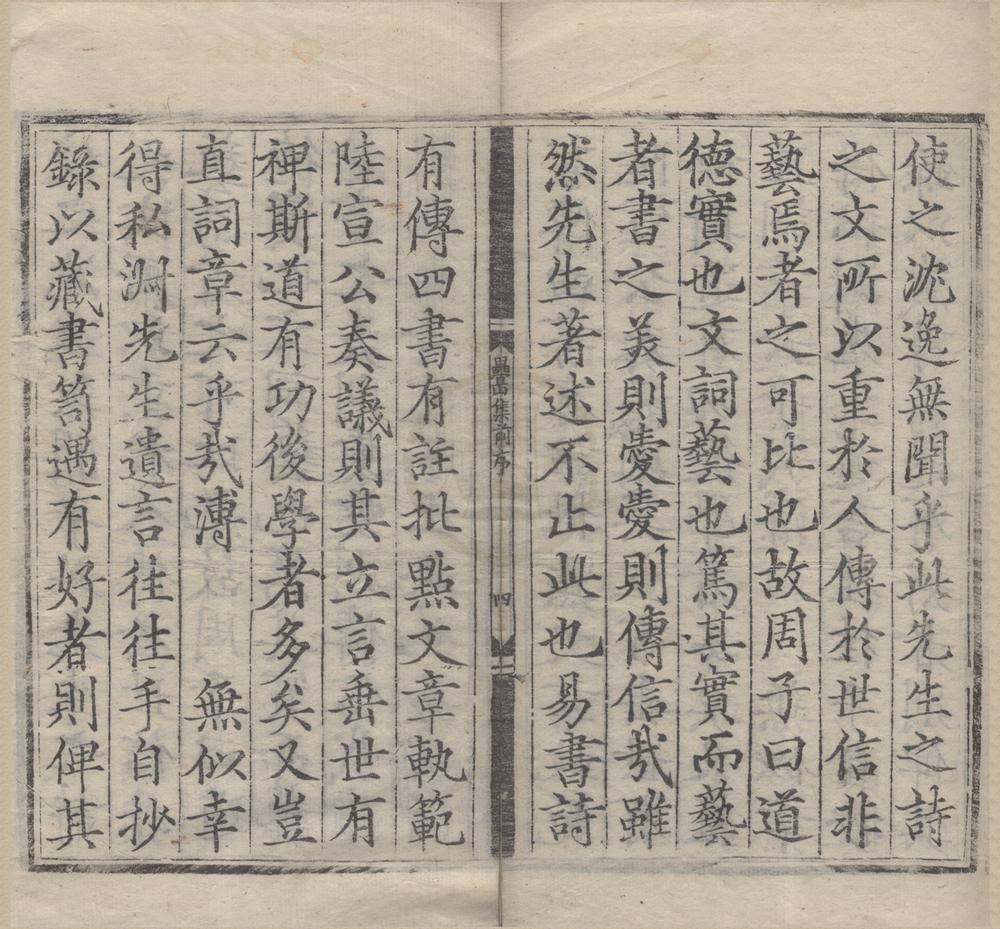 使之沈逸無聞乎此先生之詩
之文所以重於人傳於世信非
藝焉者之可比也故周子曰道
德實也文詞藝也篤其實而藝
者書之美則愛愛則傳信㢤雖
然先生著述不止此也易書詩
疊山集前序
四
有傳四書有註批點文章軌範
陸宣公奏議則其立言垂世有
禆斯道有功後學者多矣又豈
直詞章云乎㢤溥 無似幸
得私淑先生遺言徃徃手自抄
錄以藏書笥遇有好者則俾其